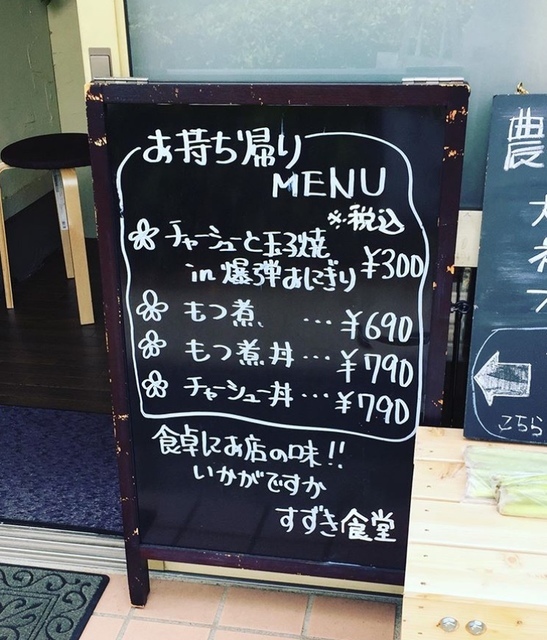 お持ち帰り
MENU
※税込
チャーシューと玉子焼
in 爆弾おにぎり ¥300
もつ煮 … ¥690
もつ煮丼 … ¥790
チャーシュー丼 … ¥790
食卓にお店の味!!
いかがですか
すずき食堂
農
こちら